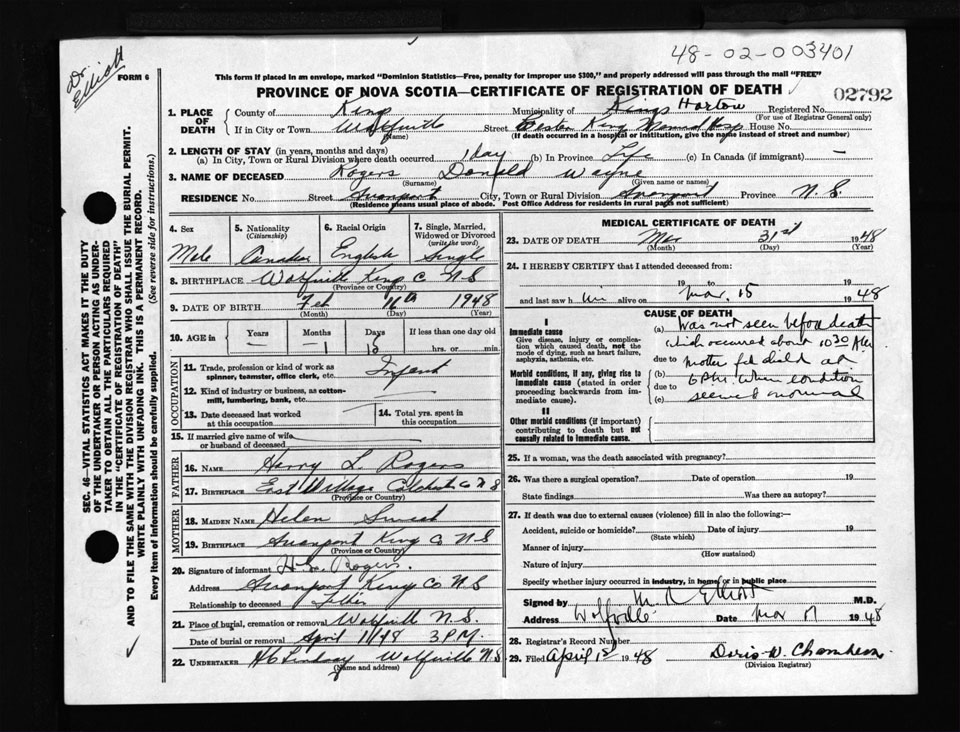 48-02-003401
Dr. Elliott
FORM 6
This form if placed in an envelope, marked "Dominion Statistics—Free, penalty for improper use $300," and properly addressed will pass through the mail "FREE"
PROVINCE OF NOVA SCOTIA—CERTIFICATE OF REGISTRATION OF DEATH
02792
1. PLACE OF DEATH
County of King Municipality of Kings Horton Registered No.
(For use of Registrar General only)
If in City or Town Wolfville Street Eastern King Memorial Hosp House No.
(Name) (If death occurred in a hospital or institution, give the name instead of street and number)
2. LENGTH OF STAY (in years, months and days)
(a) In City, Town or Rural Division where death occurred 1 day (b) In Province Life (c) In Canada (if immigrant) —
3. NAME OF DECEASED Rogers Donald Wayne
(Surname) (Given name or names)
RESIDENCE No. Street Avonport City, Town or Rural Division Avonport Province N. S.
(Residence means usual place of abode. Post Office Address for residents in rural parts not sufficient)
SEC. 46—VITAL STATISTICS ACT MAKES IT THE DUTY
OF THE UNDERTAKER OR PERSON ACTING AS UNDER-
TAKER TO OBTAIN ALL THE PARTICULARS REQUIRED
IN THE "CERTIFICATE OF REGISTRATION OF DEATH"
AND TO FILE THE SAME WITH THE DIVISION REGISTRAR WHO SHALL ISSUE THE BURIAL PERMIT.
WRITE PLAINLY WITH UNFADING INK. THIS IS A PERMANENT RECORD.
Every item of information should be carefully supplied. (See reverse side for instructions.)
4. Sex
Male
5. Nationality
(Citizenship)
Canadian
6. Racial Origin
English
7. Single, Married,
Widowed or Divorced
(write the word)
Single
8. BIRTHPLACE Wolfville King C N S
(Province or Country)
9. DATE OF BIRTH Feb 16th 1948
(Month) (Day) (Year)
10. AGE in Years Months Days If less than one day old
— 1 15 hrs. or min.
OCCUPATION
11. Trade, profession or kind of work as
spinner, teamster, office clerk, etc. Infant
12. Kind of industry or business, as cotton-
mill, lumbering, bank, etc.
13. Date deceased last worked
at this occupation
14. Total yrs. spent in
this occupation
15. If married give name of wife
or husband of deceased
FATHER
16. NAME Harry L. Rogers
17. BIRTHPLACE East Village Colchester Co N S
(Province or Country)
MOTHER
18. MAIDEN NAME Helen
19. BIRTHPLACE Avonport King Co N S
(Province or Country)
20. Signature of informant H. L. Rogers.
Address Avonport Kings Co N S
Relationship to deceased Father
21. Place of burial, cremation or removal Wolfville N. S.
Date of burial or removal April 1/48 3 P.M.
22. UNDERTAKER Lindsay Wolfville N. S
(Name and address)
MEDICAL CERTIFICATE OF DEATH
23. DATE OF DEATH Mar 31st 1948
(Month) (Day) (Year)
24. I HEREBY CERTIFY that I attended deceased from
19 to 19
and last saw him alive on Mar. 15 1948
CAUSE OF DEATH
I
Immediate cause
Give disease, injury or compli-
cation which caused death, not the
mode of dying, such as heart failure,
asphyxia, asthenia, etc.
Morbid conditions, if any, giving rise to
immediate cause (stated in order
proceeding backwards from im-
mediate cause).
II
Other morbid conditions (if important)
contributing to death but not
causally related to immediate cause.
(a) Was not seen before death
which occurred about 10 30
due to mother fed child at
(b) 6 P.M. when condition
due to
(c) seemed normal
25. If a woman, was the death associated with pregnancy?
26. Was there a surgical operation? Date of operation 19
State findings Was there an autopsy?
27. If death was due to external causes (violence) fill in also the following:—
Accident, suicide or homicide? Date of injury 19
(State which)
Manner of injury
(How sustained)
Nature of injury
Specify whether injury occurred in industry, in home or in public place
Signed by M R Elliott M.D.
Address Wolfville Date Mar 1948
28. Registrar's Record Number
29. Filed April 1st 1948 Doris W.
(Division Registrar)